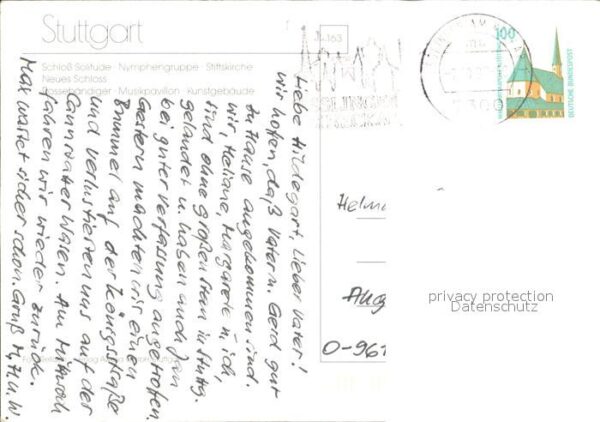 Stuttgart
Schloß Solitude · Nymphengruppe · Stiftskirche
Neues Schloss
Rossebändiger · Musikpavillon · Kunstgebäude
163
Liebe Hildegart, lieber Vater!
Wir hofen, daß Vater u. Gerd gut
zu Hause angekommen sind.
Wir, Heliane, Margarete u. ich,
sind ohne großen Stau in Stuttg.
gelandet u. haben auch Jan
bei guter Verfassung angetrofen.
Gestern machten wir einen
Bummel auf der Königstraße
und verlustierten uns auf der
Cannstatter Wasen. Am Mittwoch
fahren wir wieder zurück.
Max wartet sicher schon. Gruß M, H u. W.
ESSLINGEN
AM NECKAR
7300
100
DEUTSCHE BUNDESPOST
Helm
Aug
O-961
privacy protection
Datenschutz